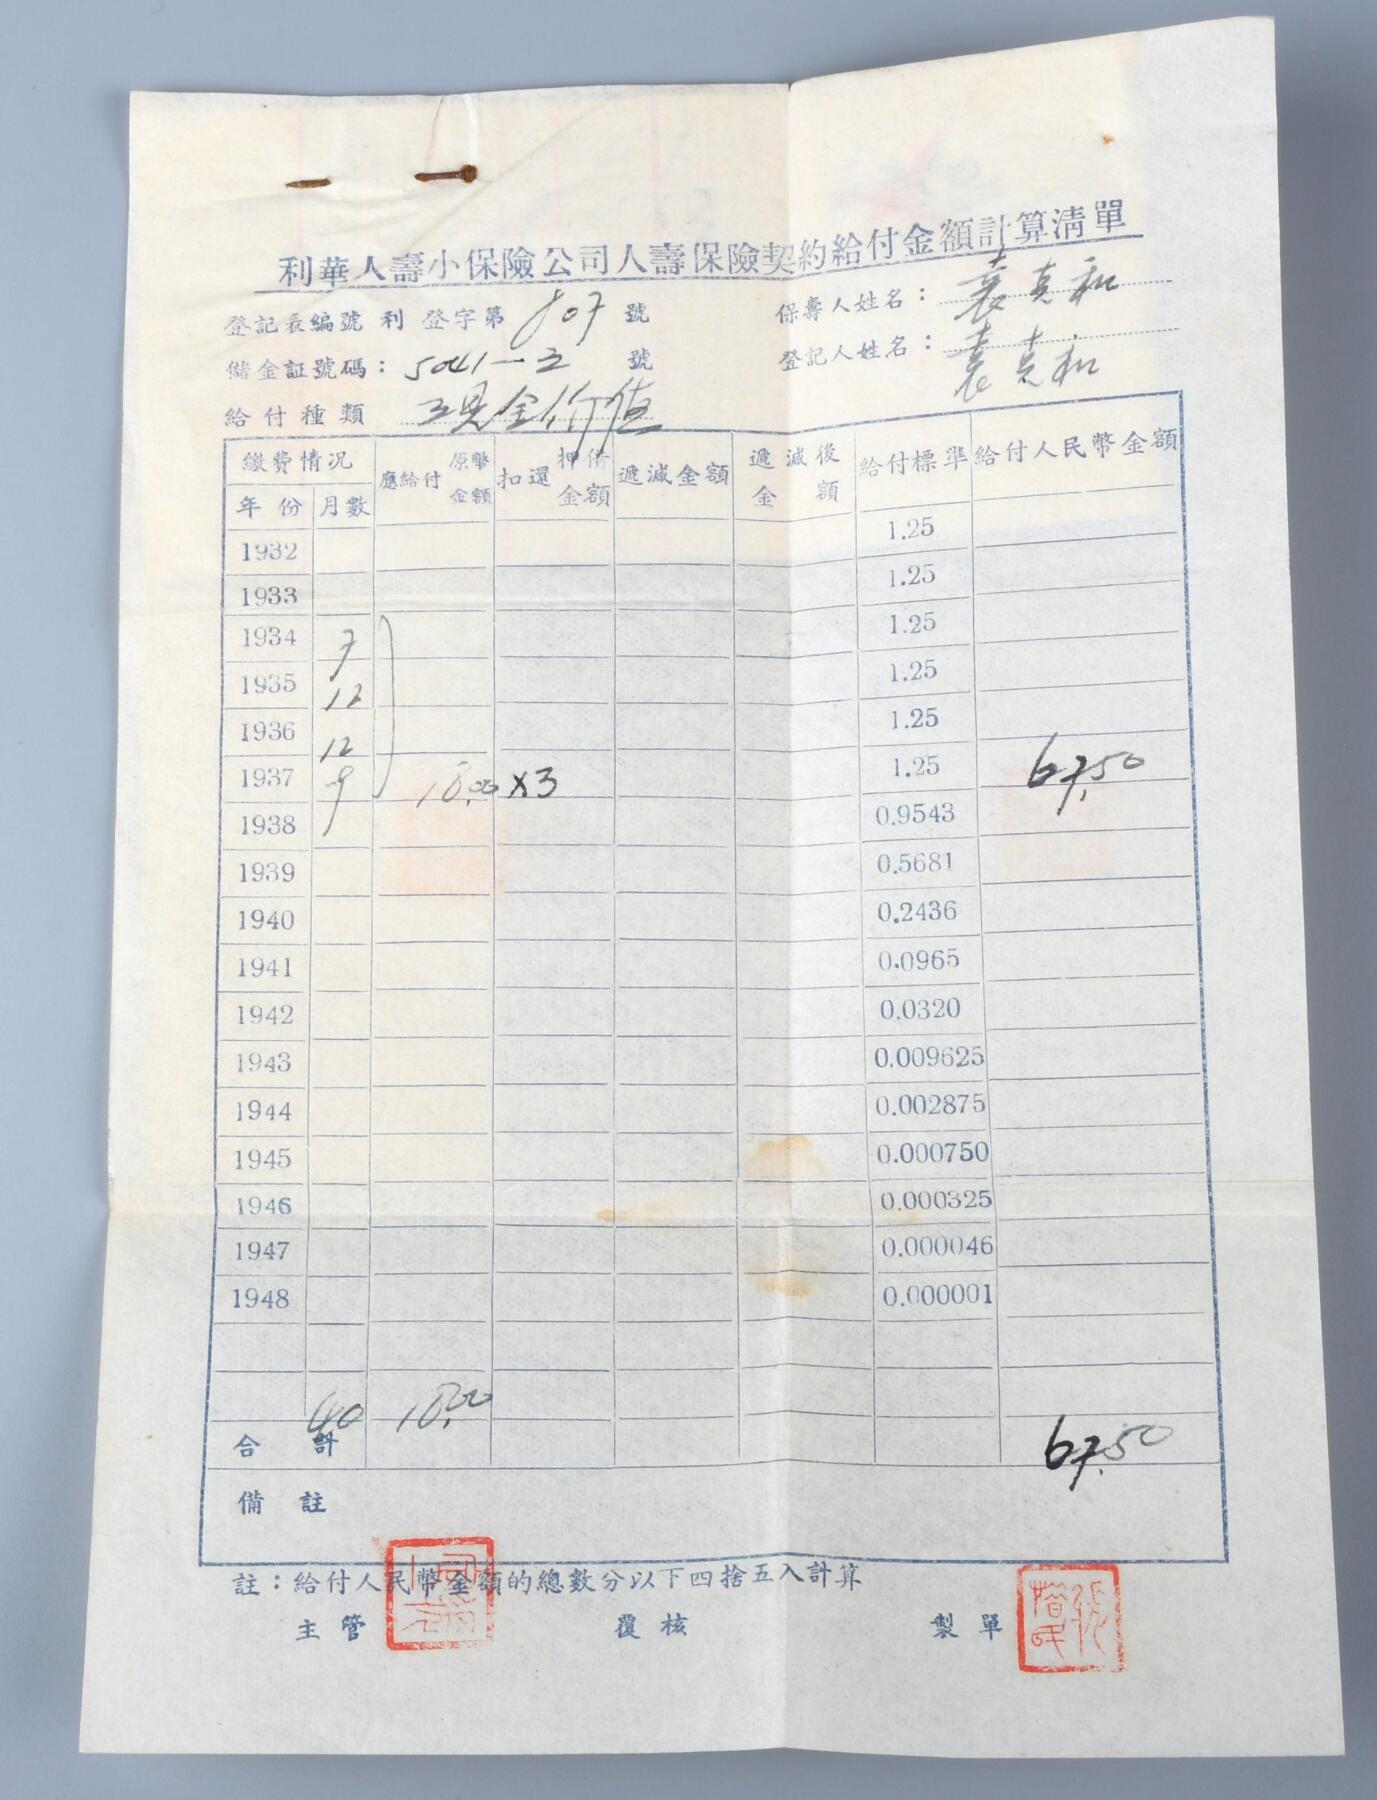 利華人壽小保險公司人壽保險契約給付金額計算清單
登記表編號 利 登字第 807 號 保壽人姓名：袁克和
儲金証號碼：5041-3 號 登記人姓名：袁克和
給付種類 現金价值
繳費情况 應給付原幣金額 扣還押借金額 遞減金額 遞減後金額 給付標準 給付人民幣金額
年份 月數
1932 1.25
1933 1.25
1934 7 1.25
1935 12 1.25
1936 12 1.25
1937 9 18.00 ×3 1.25 67.50
1938 0.9543
1939 0.5681
1940 0.2436
1941 0.0965
1942 0.0320
1943 0.009625
1944 0.002875
1945 0.000750
1946 0.000325
1947 0.000046
1948 0.000001
合計 40 18.00 67.50
備註
註：給付人民幣金額的總數分以下四捨五入計算
主管 覆核 製單